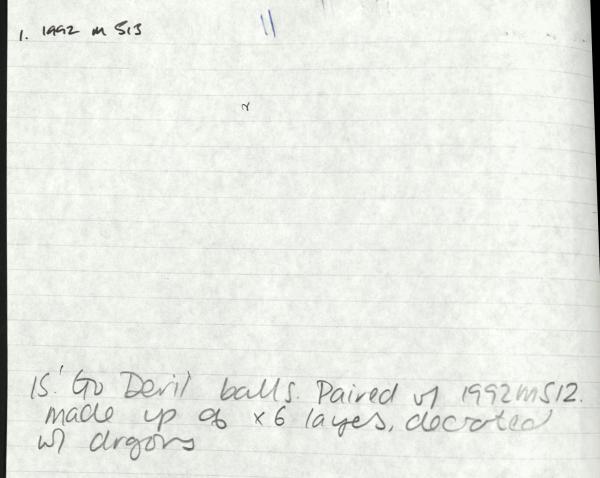 1. 1992 m 513
11
is 'Go Devil' balls. Paired w/ 1992m512.
made up of x 6 layes, decroted
w/ drgons